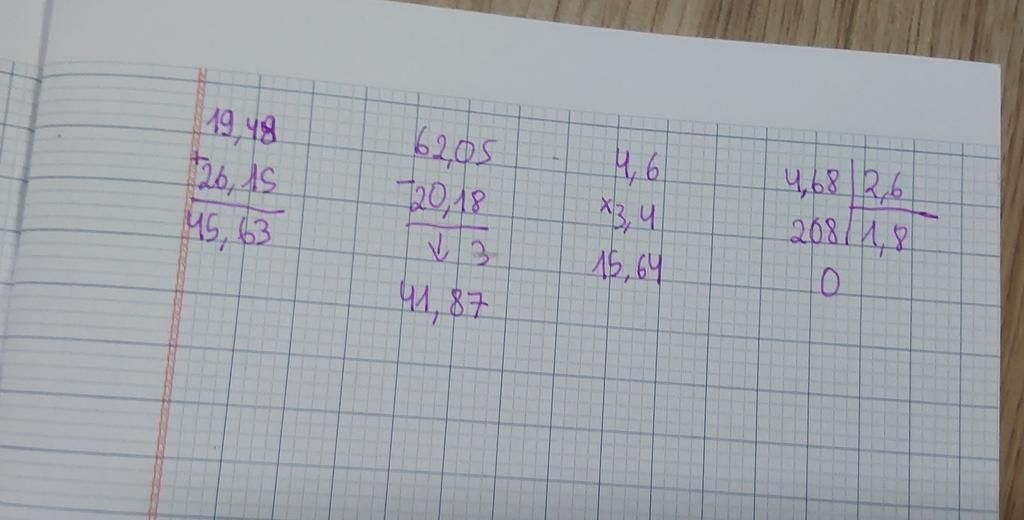 19,48
+
26,15
45,63
62,05
-
20,18
↓ 3
41,87
4,6
x3,4
15,64
4,68 2,6
208 1,8
0